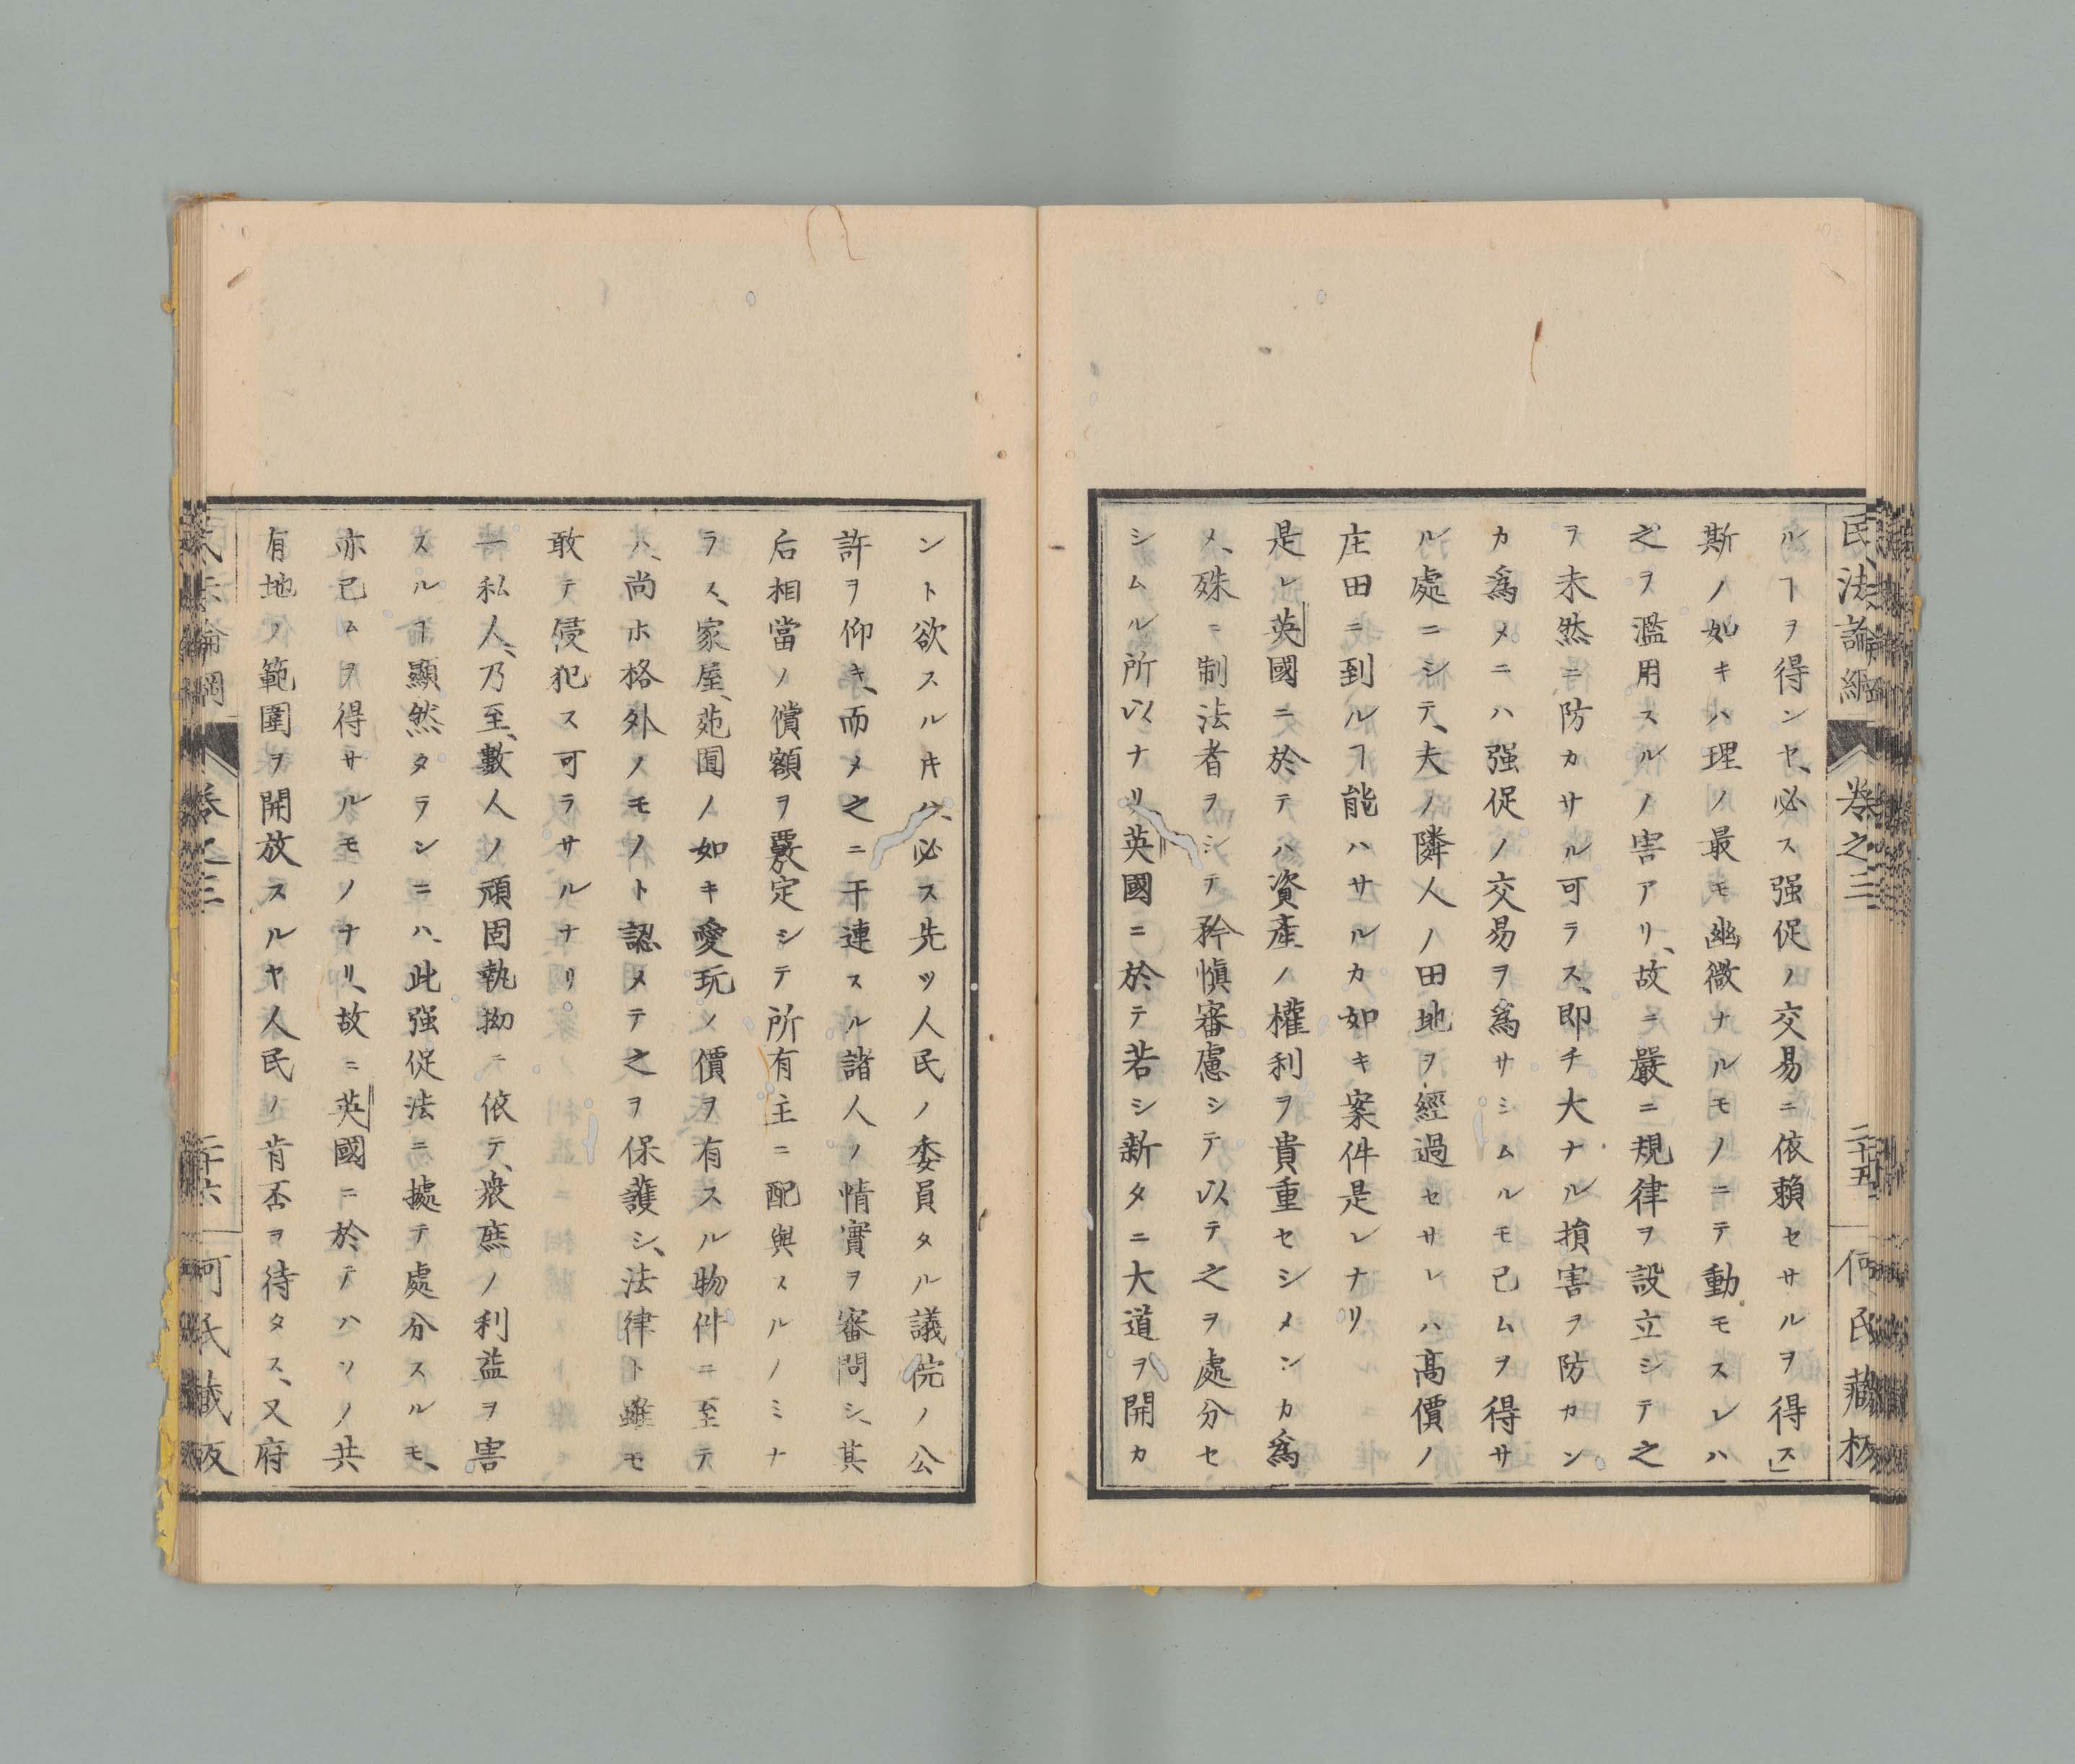 民法論綱 卷之三 二十五 何氏藏板
ルヿヲ得ンヤ、必ス强促ノ交易ニ依賴セサルヲ得ス」
斯ノ如キハ理ノ最モ幽微ナルモノニテ動モスレハ
之ヲ濫用スルノ害アリ、故ニ嚴ニ規律ヲ設立シテ之
ヲ未然ニ防カサル可ラス、即チ大ナル損害ヲ防カン
カ爲メニハ强促ノ交易ヲ爲サシムルモ已ムヲ得サ
ル處ニシテ、夫ノ隣人ノ田地ヲ經過セサレハ高價ノ
庄田ニ到ルヿ能ハサルカ如キ案件是レナリ
是レ英國ニ於テハ資產ノ權利ヲ貴重セシメンカ爲
メ、殊ニ制法者ヲシテ矜愼審慮シテ以テ之ヲ處分セ
シムル所以ナリ英國ニ於テ若シ新タニ大道ヲ開カ
ント欲スルキハ、必ス先ツ人民ノ委員タル議院ノ公
許ヲ仰キ、而メ之ニ干連スル諸人ノ情實ヲ審問シ、其
后相當ノ償額ヲ覈定シテ所有主ニ配與スルノミナ
ラス、家屋、苑囿ノ如キ愛玩ノ價ヲ有スル物件ニ至テ
ハ、尚ホ格外ノモノト認メテ之ヲ保護シ、法律ト雖モ
敢テ侵犯ス可ラサルナリ
一私人、乃至數人ノ頑固執拗ニ依テ、衆庶ノ利益ヲ害
スルヿ顯然タランニハ、此强促法ニ據テ處分スルモ、
亦已ムヲ得サルモノナリ、故ニ英國ニ於テハソノ共
有地ノ範圍ヲ開放スルヤ人民ノ肯否ヲ待タス、又府
民法論綱 卷之三 二十六 何氏藏板